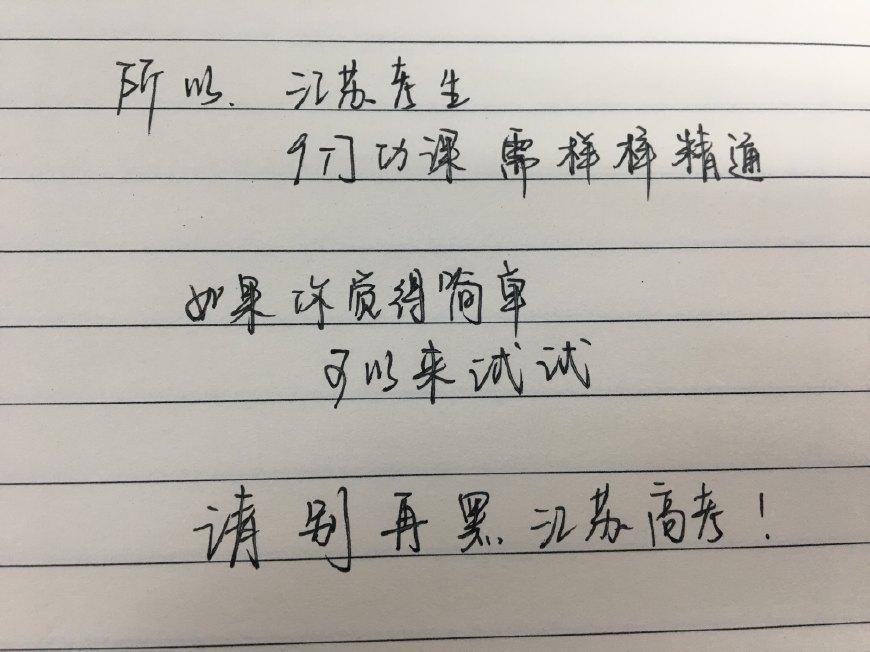 所以. 江苏考生
9门功课需样样精通
如果你觉得简单
可以来试试
请别再黑江苏高考!